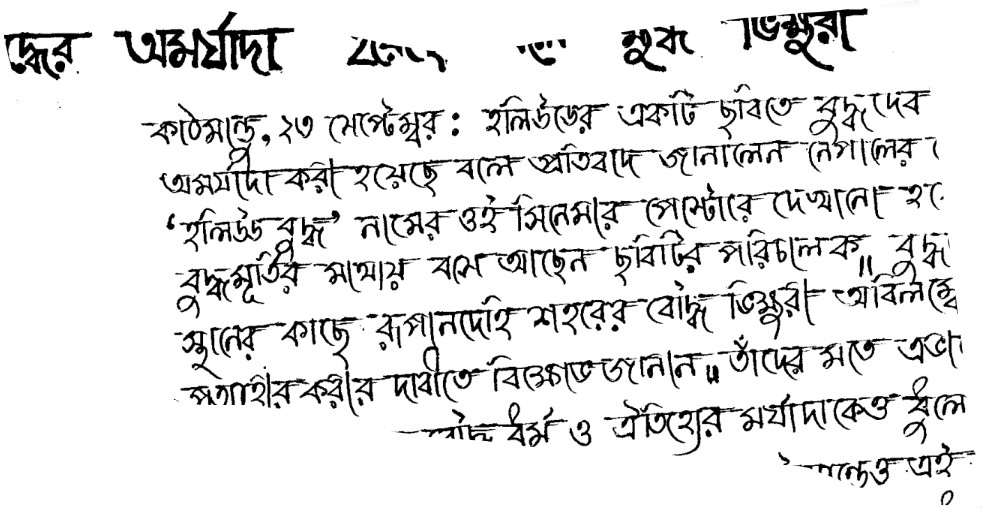 দ্ধের অমর্যাদা ক্ষুব্ধ ভিক্ষুরা
কাঠমান্ডু, ২৩ সেপ্টেম্বর : হলিউডের একটি ছবিতে বুদ্ধদেব
অমর্যাদা করা হয়েছে বলে প্রতিবাদ জানালেন নেপালের
'হলিউড বুদ্ধ' নামের ওই সিনেমার পোস্টারে দেখানো
বুদ্ধমূর্তির মাথায় বসে আছেন ছবিটির পরিচালক॥ বুদ্ধ
স্থানের কাছে রূপানদেহি শহরের বৌদ্ধ ভিক্ষুরা অবিলম্বে
করার দাবীতে বিক্ষোভ জানান॥ তাঁদের মতে এভা
ধর্ম ও ঐতিহ্যের মর্যাদাকেও ধুলে
এই